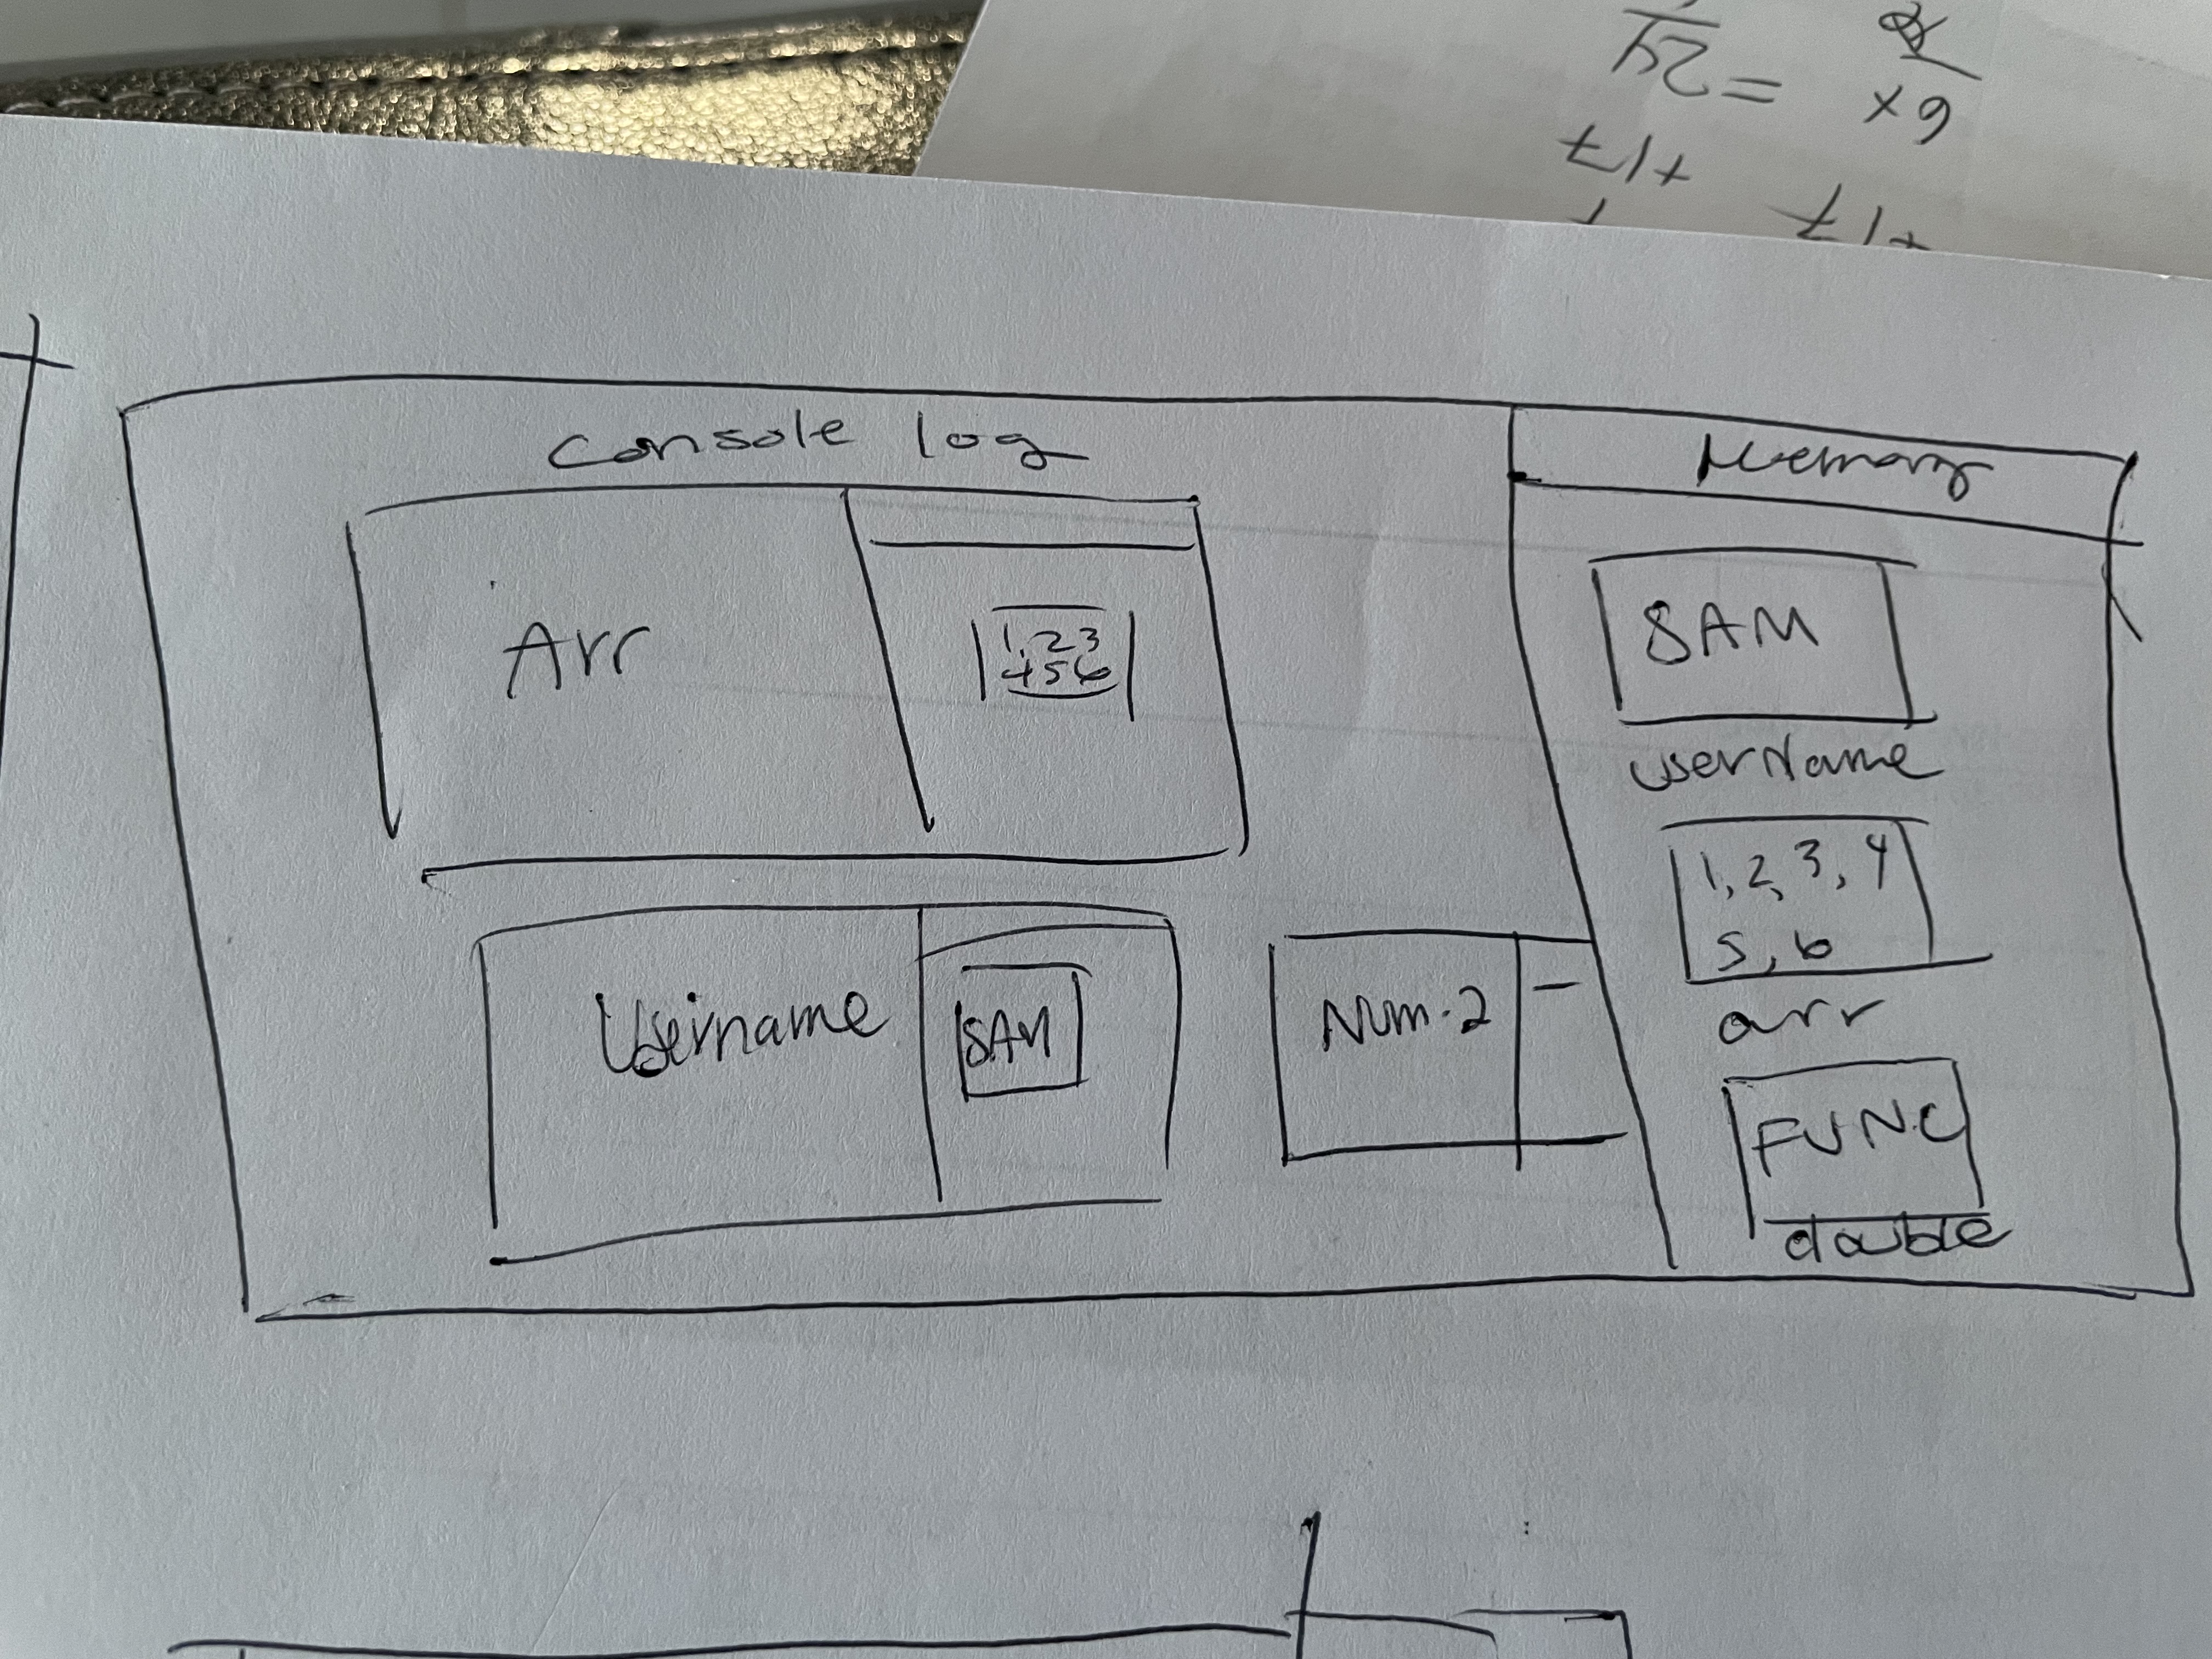 console log
Arr
1,23
456
Username
SAM
Num.2
Memory
SAM
userName
1,2,3,4
5,6
arr
FUNC
double